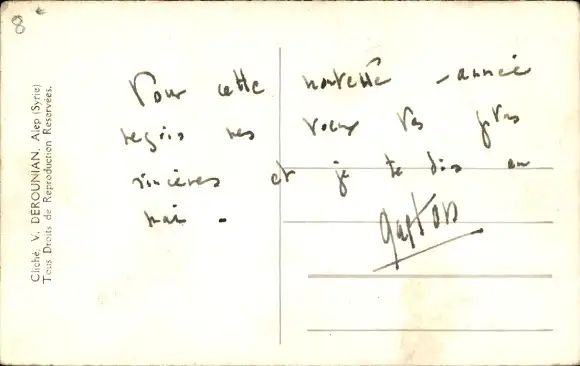 8
Pour cette nouvelle année
reçois mes voeux les plus
sincères et je te dis en
mai.
Gaston
Cliché. V. DEROUNIAN. Alep (Syrie)
Tous Droits de Reproduction Reservées.